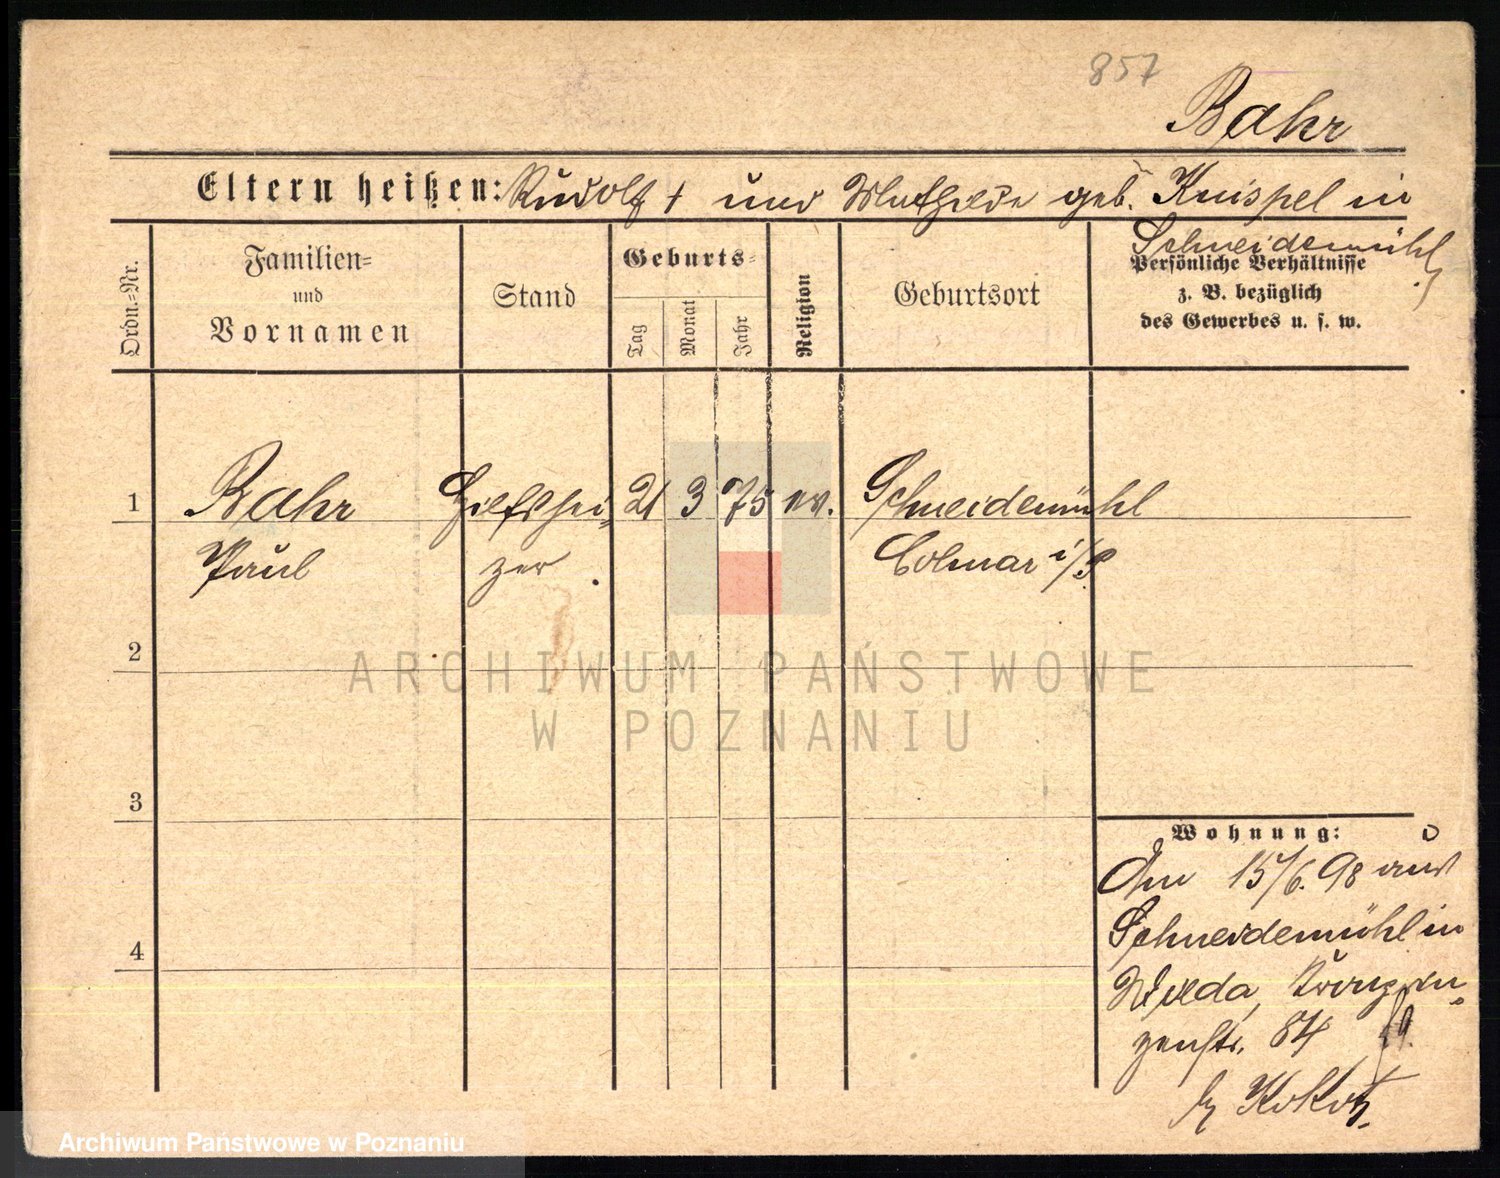 857
Bahr
Eltern heißen: Rudolf † und Mathilde geb. Knispel in
Schneidemühl
Ordn.-Nr.
Familien-
und
Vornamen
Stand
Geburts-
Tag
Monat
Jahr
Religion
Geburtsort
Persönliche Verhältnisse
z. B. bezüglich
des Gewerbes u. s. w.
1 Bahr Hilfshei- 21 3 75 ev. Schneidemühl
Paul zer. Colmar i/P.
2
ARCHIWUM PAŃSTWOWE
W POZNANIU
3
4
Wohnung:
Am 15/6. 98 aus
Schneidemühl in
Wilda, Kronprin-
zenstr. 84
b/ Kokot
Archiwum Państwowe w Poznaniu